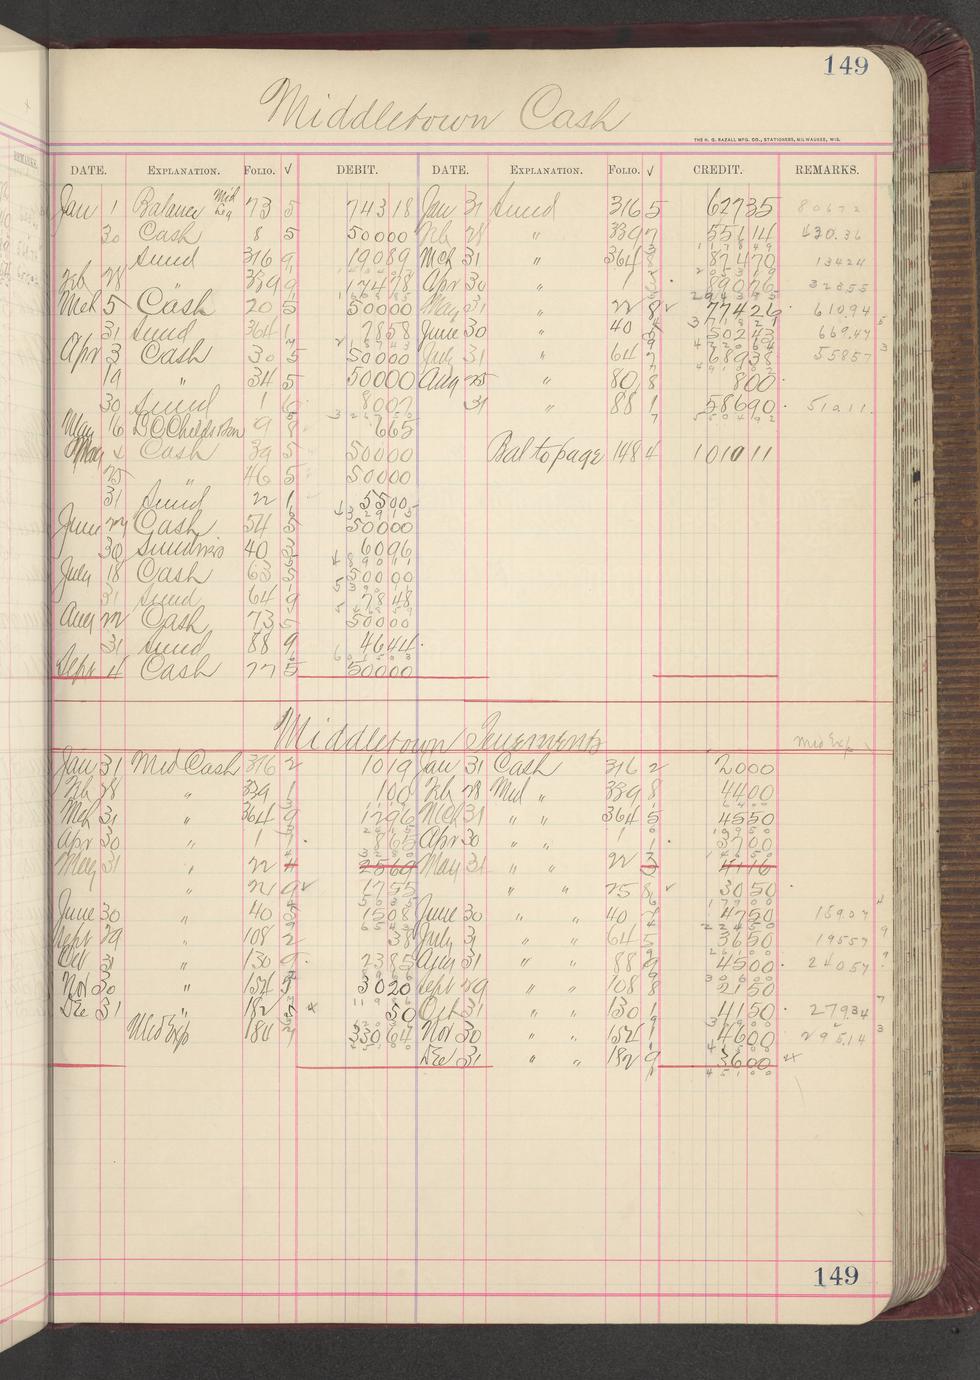 149
Middletown Cash
THE H. G. RAZALL MFG. CO., STATIONERS, MILWAUKEE, WIS.
DATE. EXPLANATION. FOLIO. √ DEBIT. DATE. EXPLANATION. FOLIO. √ CREDIT. REMARKS.
Jan 1 Balance Mid Leg 73 5 743 18 Jan 31 Sund 316 5 627 35 806 72
30 Cash 8 5 500 00 Feb 28 " 339 7 551 14 430.36
Sund 316 9 190 89 Mch 31 " 364 874 70 134 24
Feb 28 " 339 9 174 78 Apr 30 " 1 890 76 328 55
Mch 5 Cash 20 5 500 00 May 31 " 22 8 √ 774 26 610.94
31 Sund 364 1 78 58 June 30 " 40 502 43 669.47
Apr 3 Cash 30 5 500 00 July 31 " 64 7 689 38 558 57
19 " 34 5 500 00 Aug 25 " 80 8 8 00
30 Sund 1 80 07 31 " 88 1 586 90 510 11
May 16 9 8 6 65
May Cash 39 5 500 00 Bal to page 148 4 1010 11
25 " 46 5 500 00
31 Sund 22 1 55 00
June Cash 54 5 500 00
30 Sundries 40 60 96
July 18 Cash 63 5 500 00
31 Sund 64 9 78 48
Aug 22 Cash 73 5 500 00
31 Sund 88 9 46 44
Sept 4 Cash 77 5 500 00
Middletown Tenements
Mid Exp
Jan 31 Mid Cash 316 2 10 19 Jan 31 Cash 316 2 20 00
Feb 28 " 339 1 1 00 Feb 28 Mid " 339 8 44 00
Mch 31 " 364 9 12 96 Mch 31 " " 364 5 45 50
Apr 30 " 1 8 65 Apr 30 " " 1 1 37 00
May 31 " 22 4 25 69 May 31 " " 22 3 41 16
" 21 9 √ 17 55 " " 25 8 √ 30 50
June 30 " 40 15 08 June 30 " " 40 47 50 159.07
Sept 29 " 108 2 38 July 31 " " 64 5 36 50 195 57
Oct 31 " 130 9 23 85 Aug 31 " " 88 9 45 00 240 57
Nov 30 " 154 30 20 Sept 29 " " 108 8 21 50
Dec 31 " 182 50 Oct 31 " " 130 1 41 50 279.34
Mid Exp 184 330 64 Nov 30 " " 154 1 46 00 295.14
Dec 31 " " 182 9 36 00
149